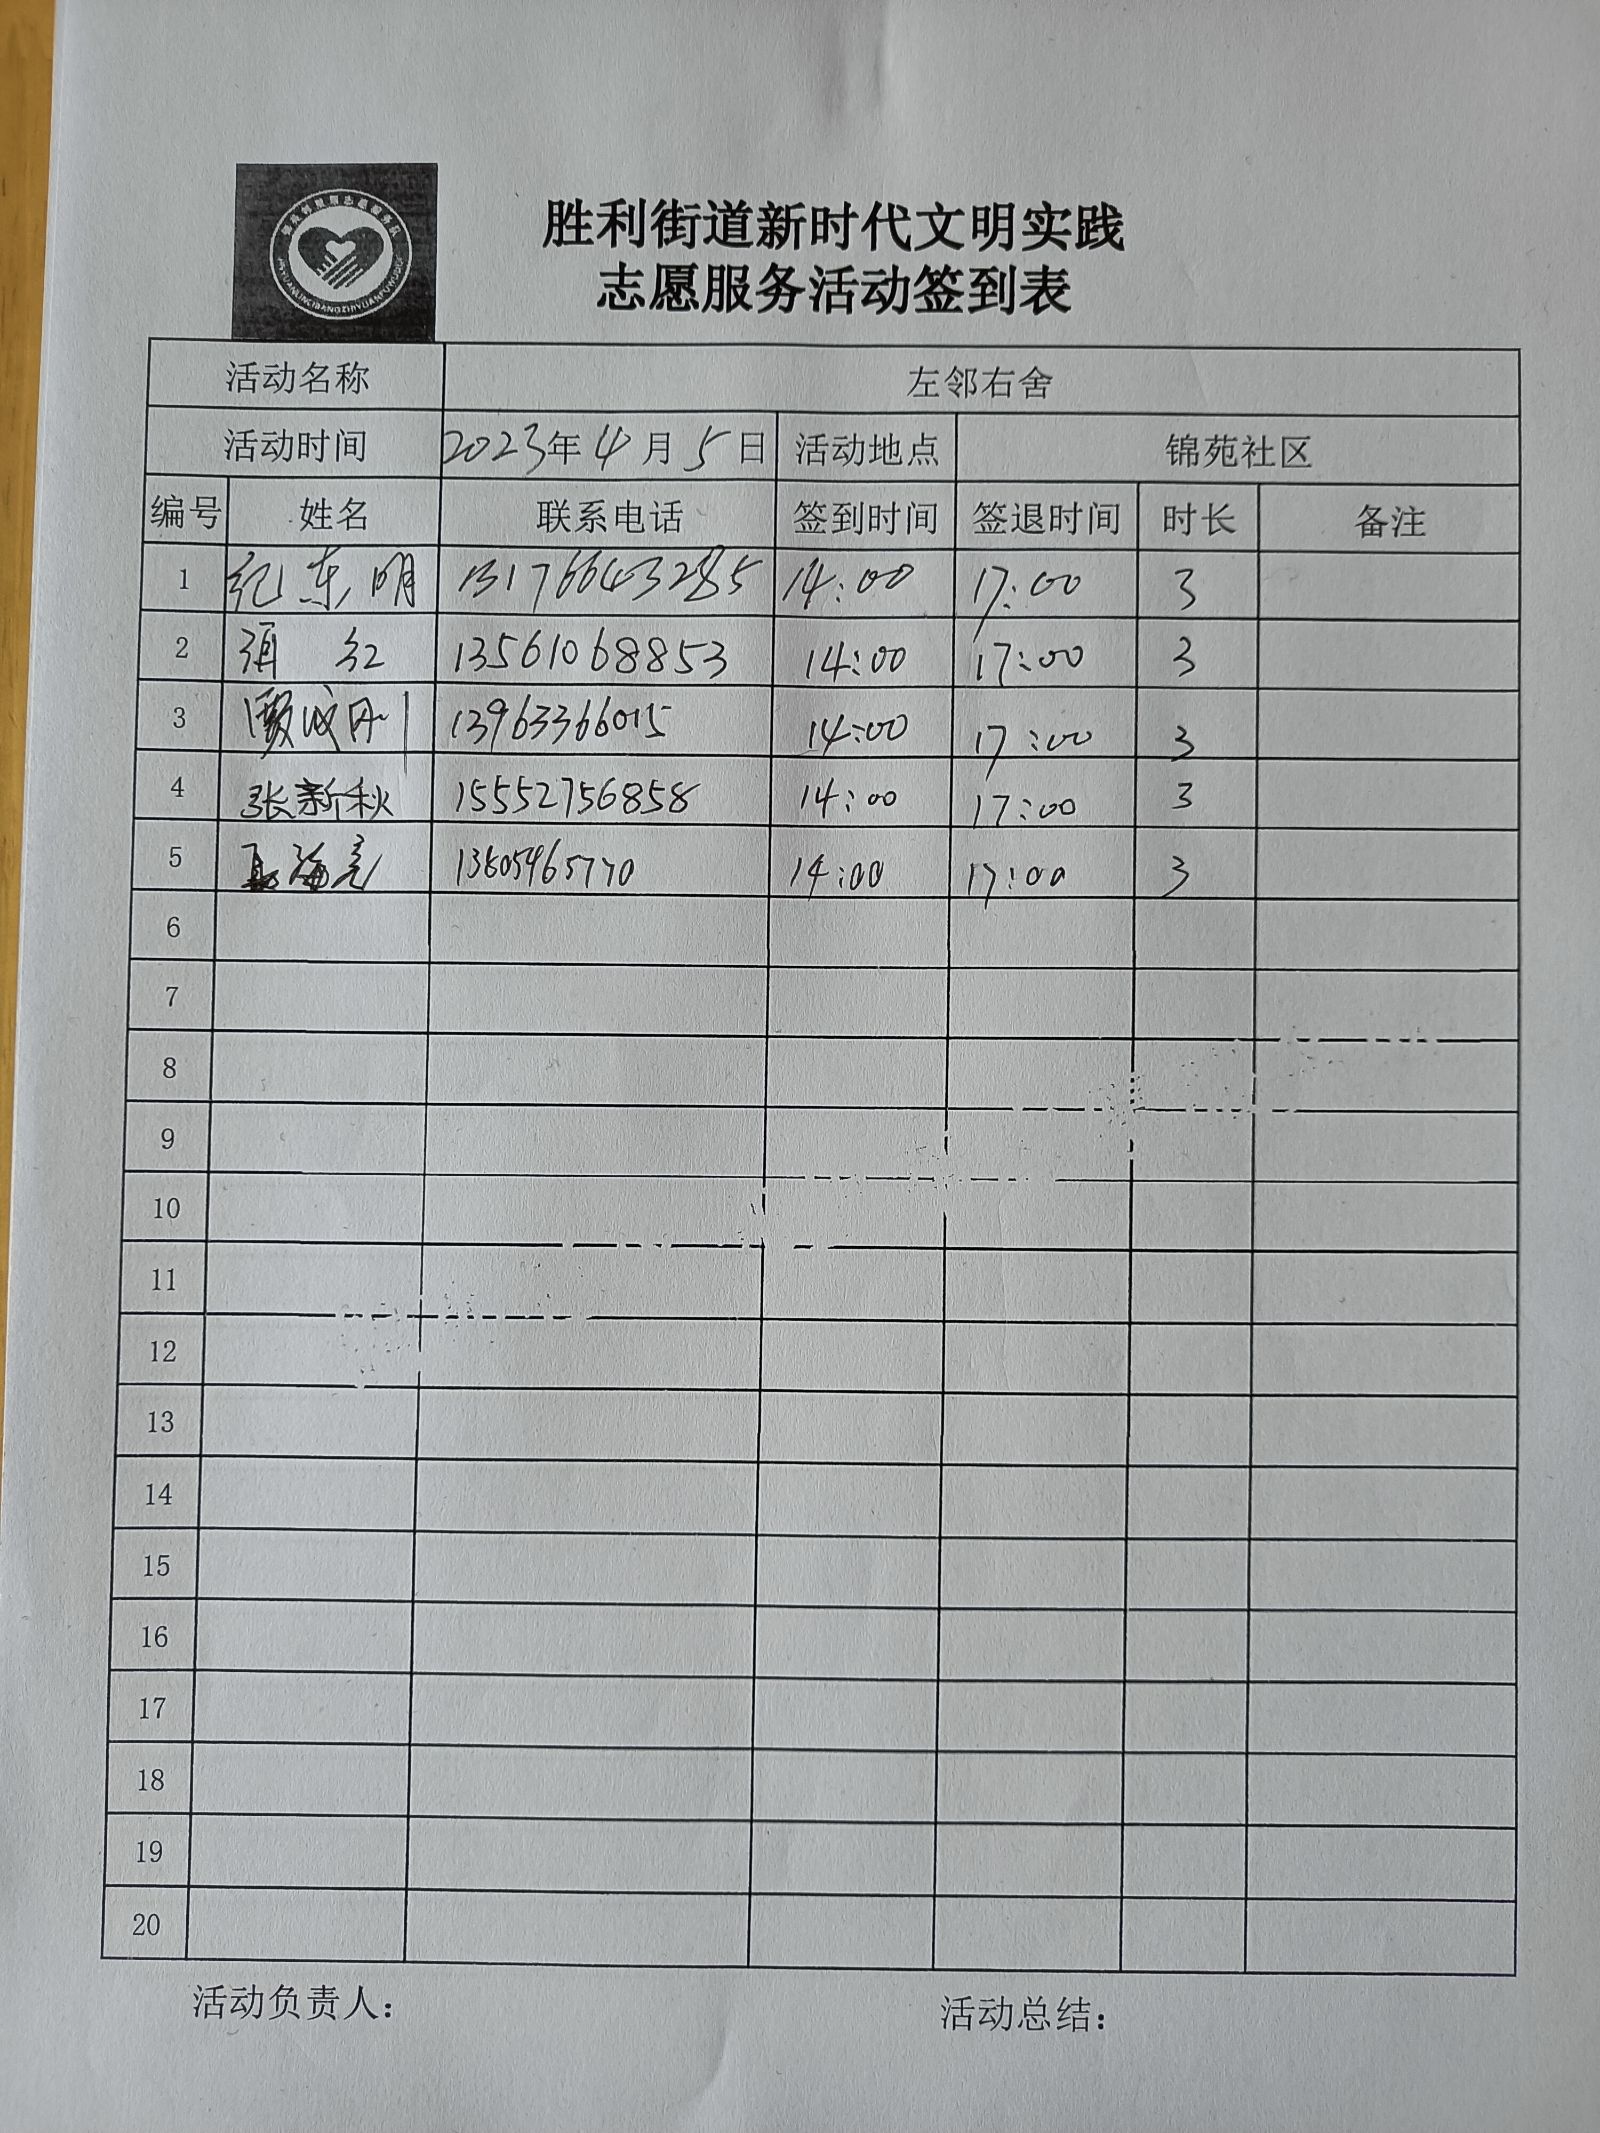 胜利街道新时代文明实践
志愿服务活动签到表
活动名称 左邻右舍
活动时间 2023年4月5日 活动地点 锦苑社区
编号 姓名 联系电话 签到时间 签退时间 时长 备注
1 纪东明 13176643285 14:00 17:00 3
2 张红 13561068853 14:00 17:00 3
3 13963366015 14:00 17:00 3
4 张新秋 15552756858 14:00 17:00 3
5 海亮 13805465770 14:00 17:00 3
6
7
8
9
10
11
12
13
14
15
16
17
18
19
20
活动负责人: 活动总结: